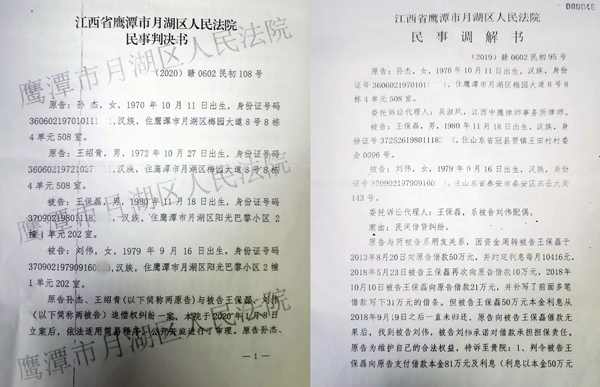 江西省鹰潭市月湖区人民法院
民事判决书
（2020）赣 0602 民初 108 号
原告：孙杰，女，1970 年 10 月 11 日出生，身份证号码
3606021970101，汉族，住鹰潭市月湖区梅园大道 8 号 8 栋
4 单元 508 室。
原告：王绍青，男，1972 年 10 月 27 日出生，身份证号码
360602197210，汉族，住鹰潭市月湖区梅园大道 8 号 8 栋
4 单元 508 室。
被告：王保磊，男，1980 年 11 月 18 日出生，身份证号码
37252619801118，汉族，住鹰潭市月湖区阳光巴黎小区 2
幢 1 单元 202 室。
被告：刘伟，女，1979 年 9 月 16 日出生，身份证号码
37090219790916，汉族，住鹰潭市月湖区阳光巴黎小区 2 幢
1 单元 202 室。
原告孙杰、王绍青（以下简称两原告）与被告王保磊、刘伟
（以下简称两被告）追偿权纠纷一案，本院于 2020 年 1 月 8 日
立案后，依法适用简易程序，公开开庭进行了审理。原告孙杰、
— 1 —
鹰潭市月湖区人民法院
鹰潭市月湖区人民法院
鹰潭市月湖区人民法院
鹰潭市月湖区人民法院
江西省鹰潭市月湖区人民法院
民事调解书
（2019）赣 0602 民初 95 号
原告：孙杰，女，1970 年 10 月 11 日出生，汉族，身份
证号 3606021970101，住鹰潭市月湖区梅园大道 8 号 8 栋
4 单元 508 室。
委托诉讼代理人：吴淑凤，江西中鹰律师事务所律师。
被告：王保磊，男，1980 年 11 月 18 日出生，汉族，身
份证号 37252619801118，住山东省冠县贾镇王田村村委
会 0096 号。
被告：刘伟，女，1979 年 9 月 16 日出生，汉族，身份
证号 37090219790916，住山东省泰安市泰安区东岳大街
143 号。
委托诉讼代理人：王保磊，系被告刘伟配偶。
案由：民间借贷纠纷。
原告与两被告系朋友关系，因资金周转被告王保磊于
2013年8月20日向原告借款50万元，并约定利息每月10416元，
2018年5月23日被告王保磊再次向原告借款10万元，2018年
10月10日被告王保磊向原告借款21万元，并补写了前面多笔
借款写下31万元的借条。但被告王保磊50万元本金利息从
2018年9月19日之后一直未归还，原告向被告王保磊催款无
果后，找到被告刘伟，被告刘伟承诺对借款承担担保责任。
原告为维护自己的合法权益，特诉至贵院：1、判令被告王保
磊向原告支付借款本金81万元及利息（利息以本金50万元